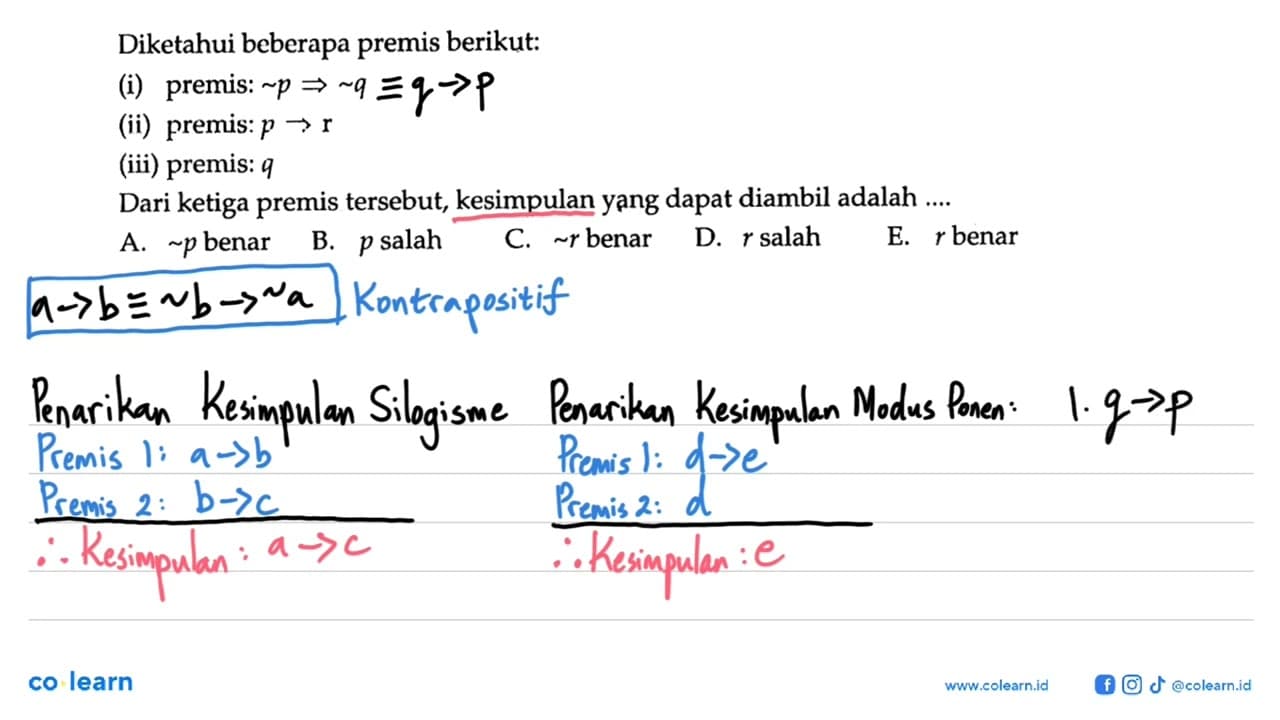 Diketahui beberapa premis berikut:
(i) premis: ~p ⇒ ~q ≡ q → p
(ii) premis: p → r
(iii) premis: q
Dari ketiga premis tersebut, kesimpulan yang dapat diambil adalah ....
A. ~p benar B. p salah C. ~r benar D. r salah E. r benar
a → b ≡ ~b → ~a Kontrapositif
Penarikan Kesimpulan Silogisme
Premis 1: a → b
Premis 2: b → c
∴ Kesimpulan: a → c
Penarikan Kesimpulan Modus Ponen:
Premis 1: d → e
Premis 2: d
∴ Kesimpulan: e
1. q → p
co learn
www.colearn.id @colearn.id